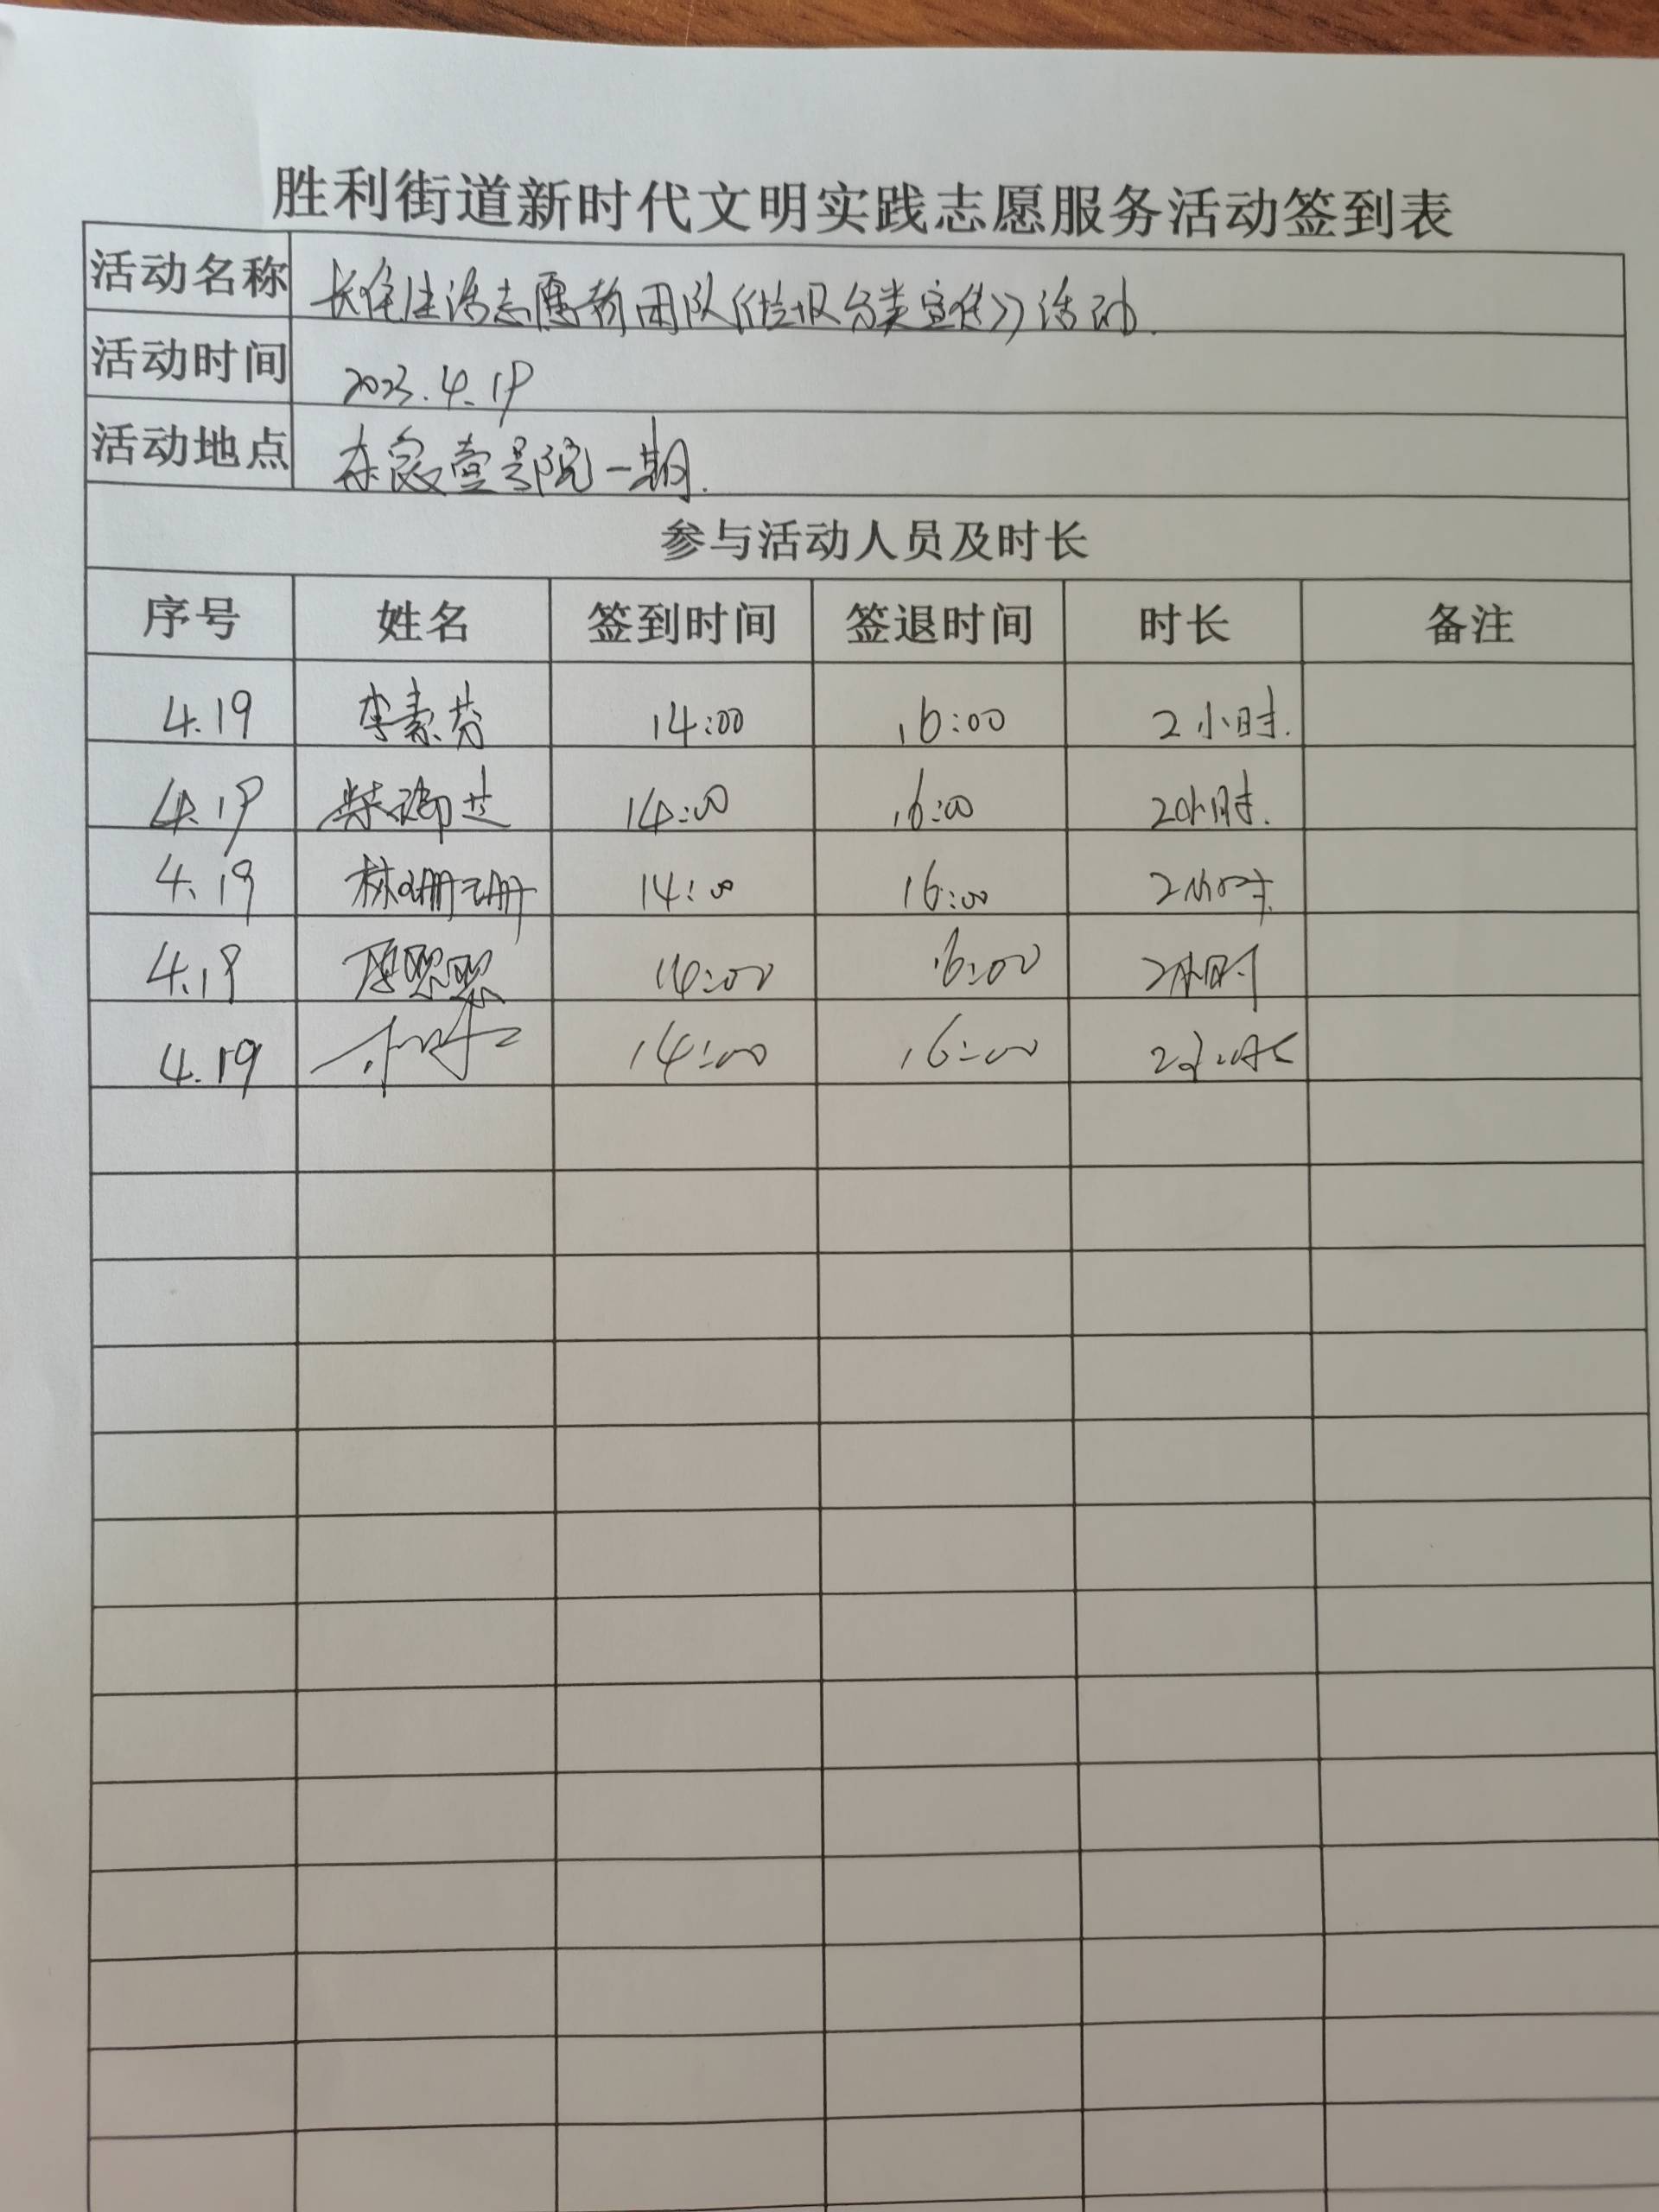 胜利街道新时代文明实践志愿服务活动签到表
活动名称 长住生活志愿者团队《垃圾分类宣传》活动.
活动时间 2023.4.19
活动地点 壹号院一期.
参与活动人员及时长
序号 姓名 签到时间 签退时间 时长 备注
4.19 李素芬 14:00 16:00 2小时.
4.19 14:00 16:00 2小时.
4.19 林珊珊 14:00 16:00 2小时.
4.19 14:00 16:00 2小时
4.19 14:00 16:00 2小时